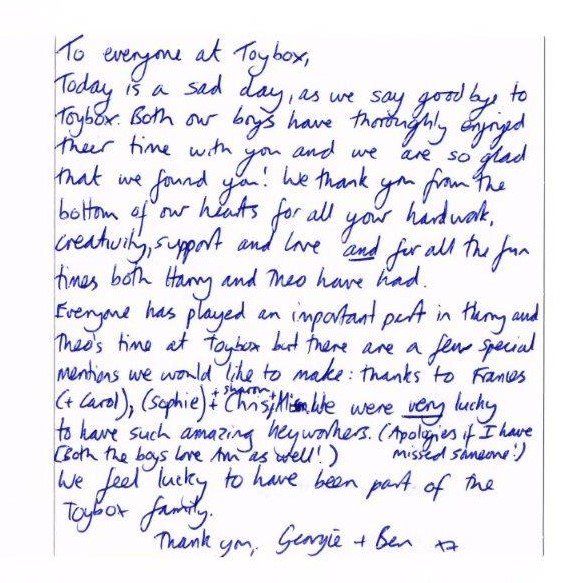 To everyone at Toybox,
Today is a sad day, as we say goodbye to
Toybox. Both our boys have thoroughly enjoyed
their time with you and we are so glad
that we found you! We thank you from the
bottom of our hearts for all your hardwork,
creativity, support and love and for all the fun
times both Harry and Theo have had.
Everyone has played an important part in Harry and
Theo's time at Toybox but there are a few special
mentions we would like to make: thanks to Frances
+ Sharon +
(+ Carol), (Sophie) + Chris, We were very lucky
to have such amazing keyworkers. (Apologies if I have
(Both the boys love Am as well!) missed someone!)
We feel lucky to have been part of the
Toybox family.
Thank you, Georgie + Ben xx